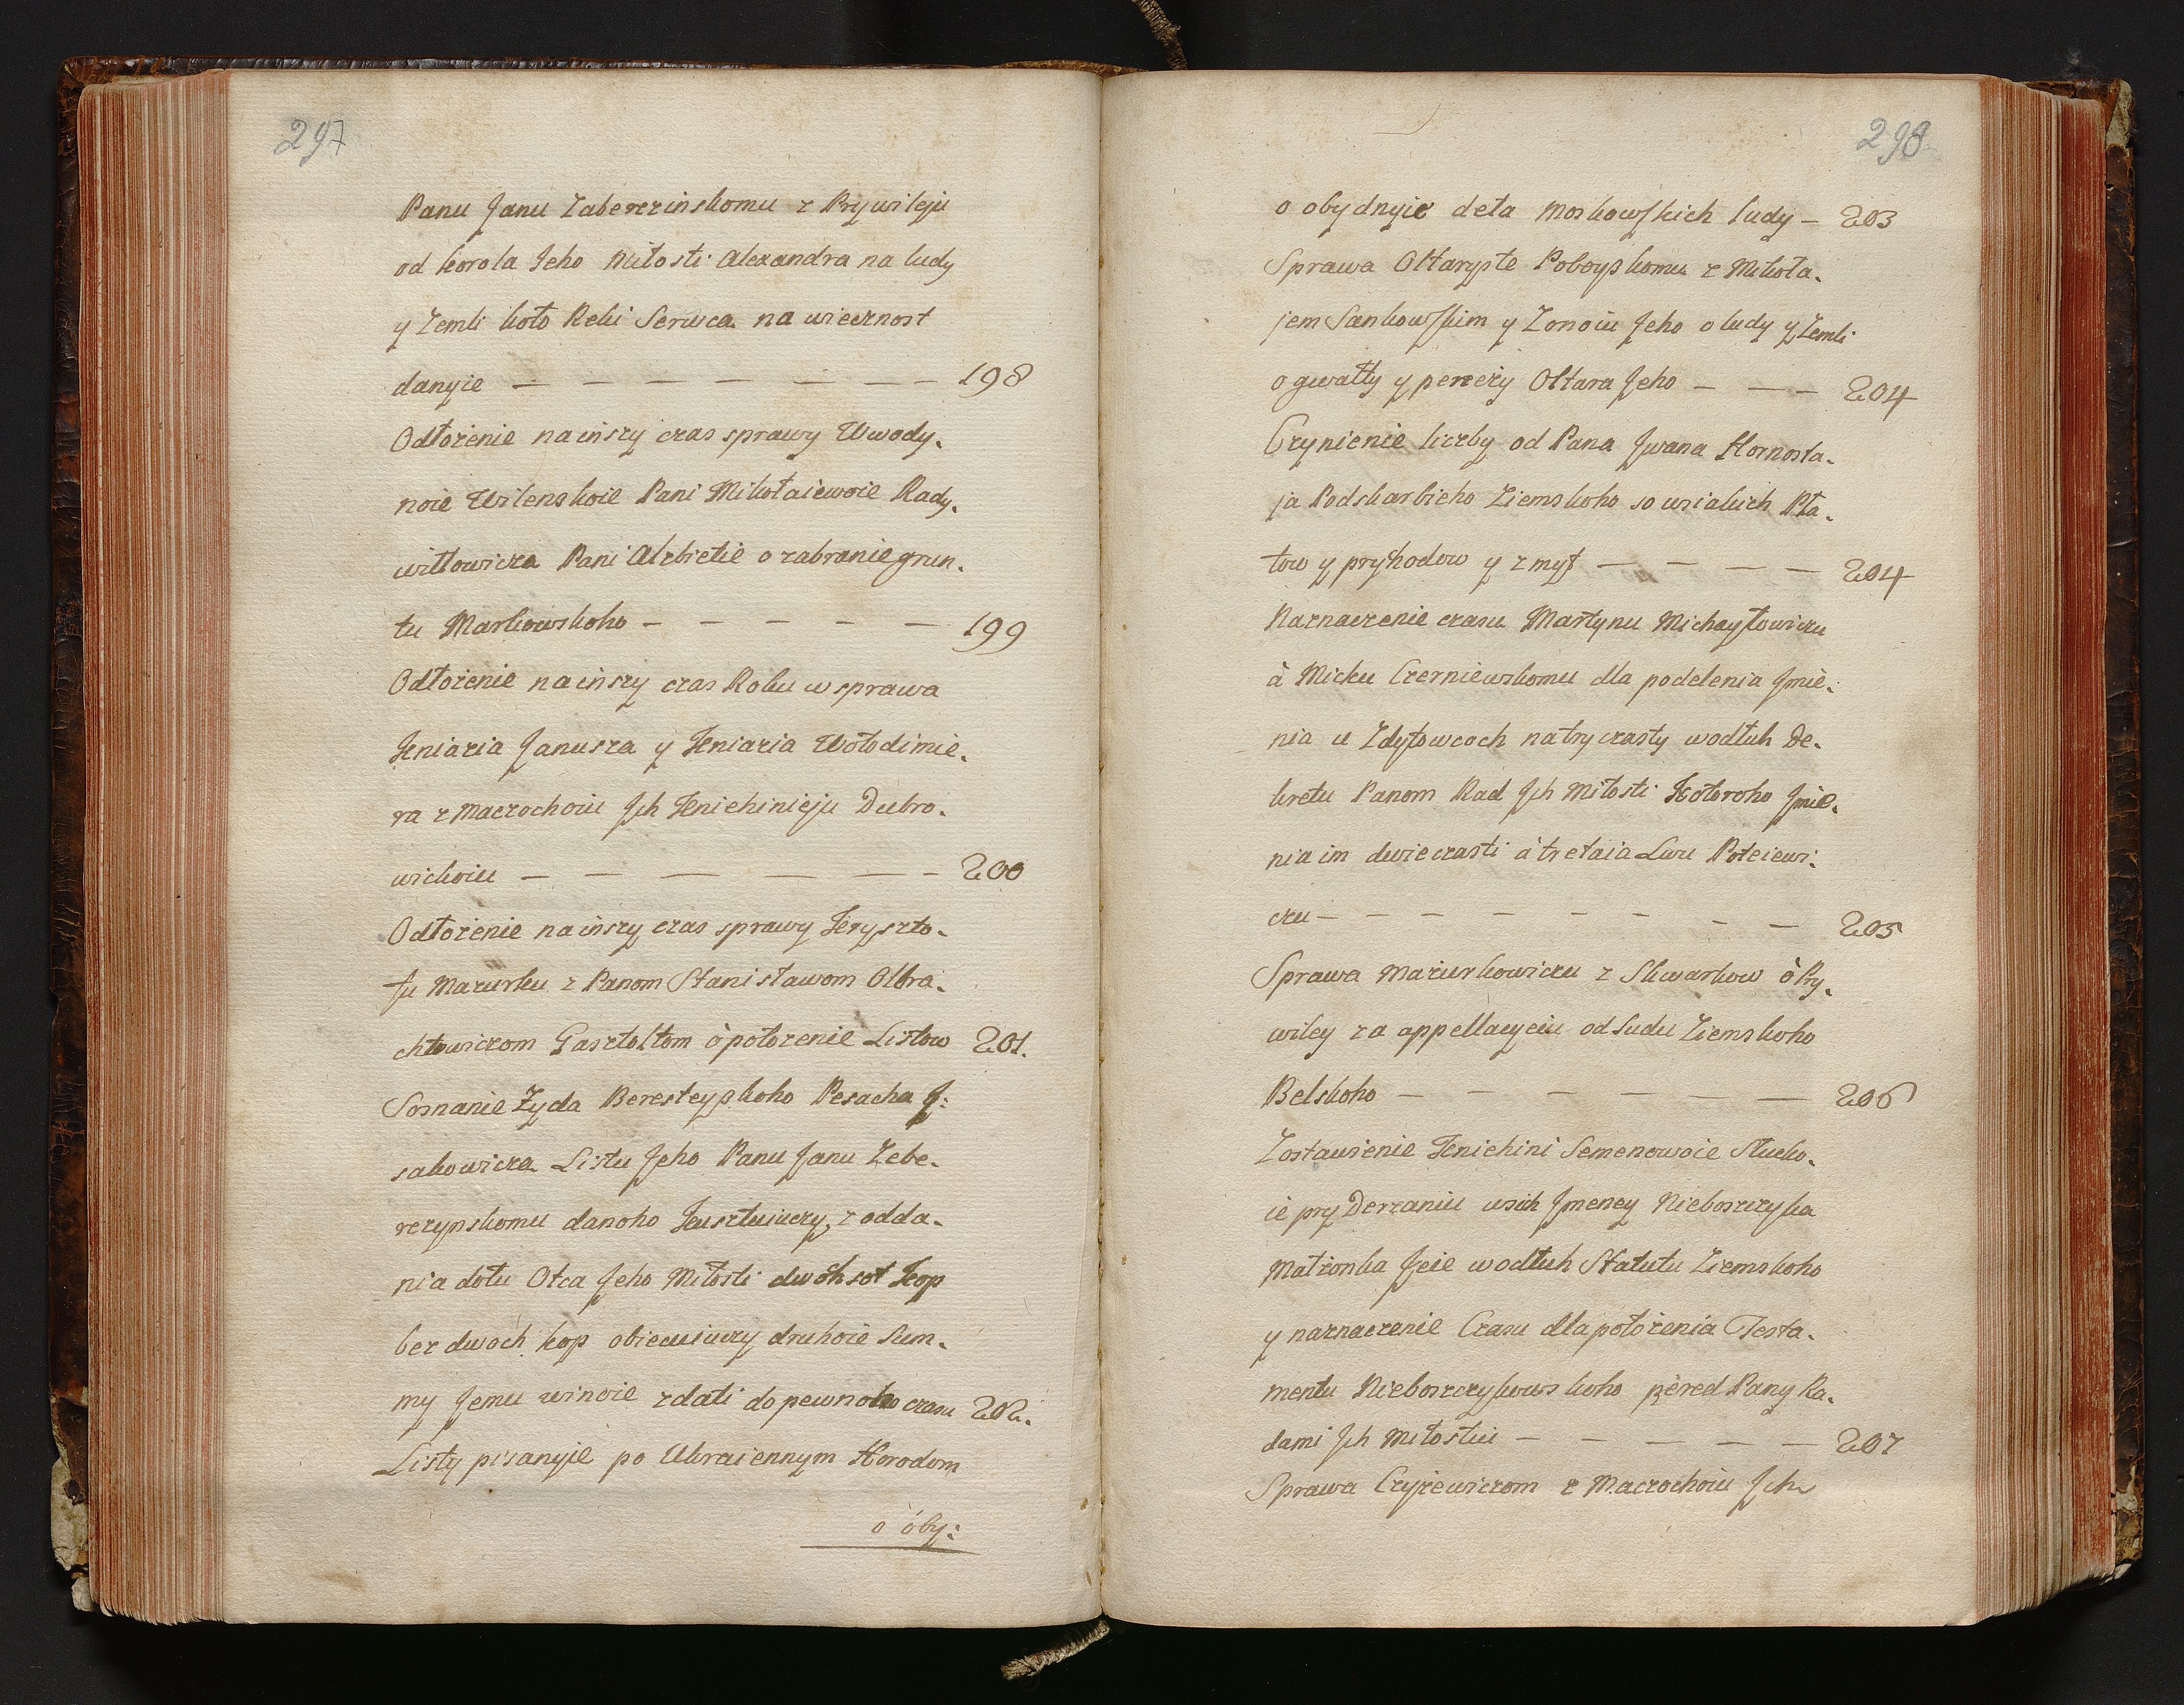 297
Panu Janu Zaberezinskomu z Prywileju
od korola Jeho Miłosti Alexandra na ludy
y Zemli koło Reki Serwca na wiecznost
danyie — — — — — — — 198
Odłożenie na inszy czas sprawy Wwody-
noie Wilenskoie Pani Mikołaiewoie Rady-
wiłłowicza Pani Alzbietie o zabranie grun-
tu Markowskoho — — — — — 199
Odłożenie na inszy czas Roku w sprawa
Kniazia Janusza y Kniazia Wołodimie-
ra z Maczochoiu Jch Kniehinieju Dubro-
wickoiu — — — — — — 200
Odłożenie na inszy czas sprawy Kryszto-
fu Mazurku z Panom Stanisławom Olbra-
chtowiczom Gasztoltom ò położenie Listow 201.
Soznanie Żyda Beresteyskoho Pesacha J:
sakowicza Listu Jeho Panu Janu Zebe-
rezynskomu danoho Kusztuiuczy, z odda-
nia dołu Otca Jeho Miłosti dwoh sot Kop
bez dwoch kop obiecuiuczy druhoie Sum-
my Jemu winoie zdati do pewnoho czasu 202.
Listy pisanyie po Ukraiennym Horodom
o óby:
298
o obydnyie deła Moskowskich ludy — 203
Sprawa Ołtaryste Poboyskomu z Mikoła-
jem Sankowskim y Zonoiu Jeho o ludy y Zemli
o gwałty y penezy Ołtara Jeho — — — 204
Czynienie liczby od Pana Jwana Hornosta-
ja Podskarbieho Ziemskoho so wsiakich Pła-
tow y pryhodow y z myt — — — — 204
Naznaczenie czasu Martynu Michayłowiczu
à Micku Czerniewskomu dla podelenia Jmie-
nia u Zdytowcoch na try czasty wodłuh De-
kretu Panom Rad Jch Miłosti Kotoroho Jmie-
nia im dwie czasti à tretaia Lwu Poteiewi-
czu — — — — — — — — 205
Sprawa Mazurkowiczu z Skwarkow ò Pry-
wiley za appellacyeiu od Sudu Ziemskoho
Belskoho — — — — — — 206
Zostawienie Kniehini Semenowoie Słucko-
ie pry Derzaniu wsich Jmeney Nieboszczyka
Małżonka Jeie wodłuh Statutu Ziemskoho
y naznaczenie Czasu dla położenia Testa-
mentu Nieboszczykowskoho pered Pany Ra-
dami Jch Miłostiu — — — — — 207
Sprawa Czyżewiczom z Maczochoiu Jch